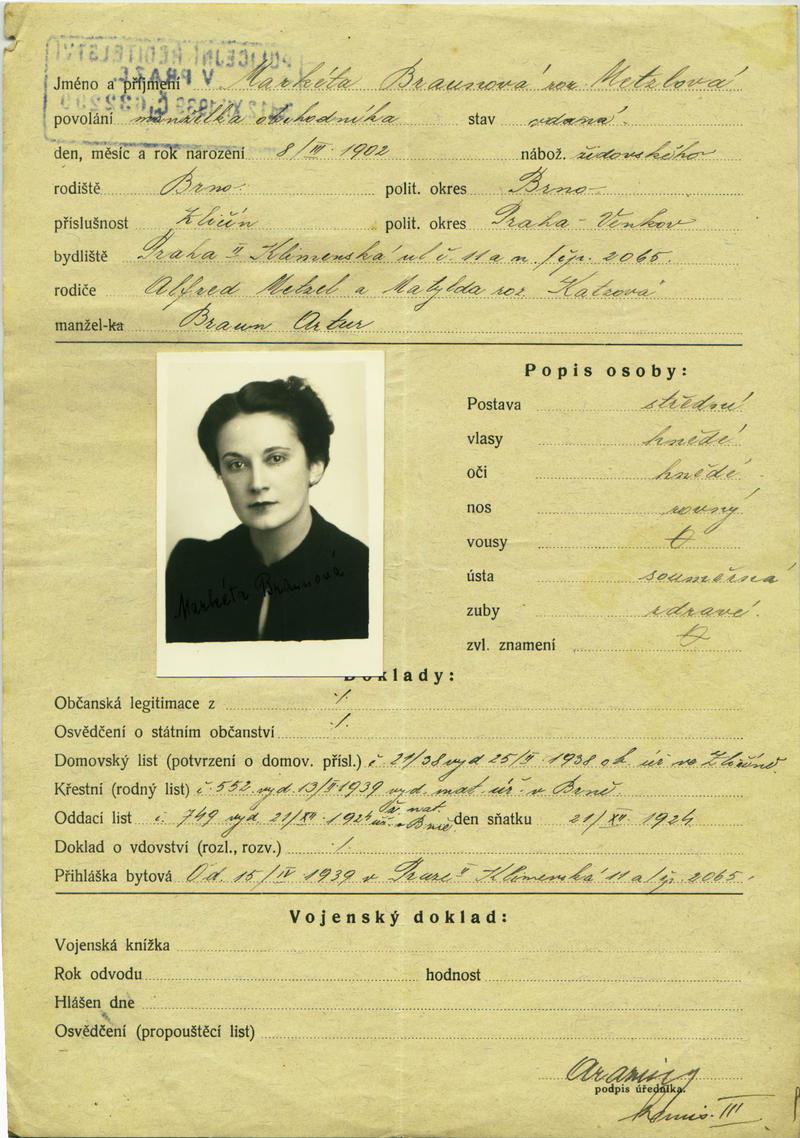 POLICEJNÍ ŘEDITELSTVÍ
V PRAZE
Jméno a příjmení Markéta Braunová roz Metzlová
povolání manželka obchodníka stav vdaná.
den, měsíc a rok narození 8/III. 1902 nábož. židovského
rodiště Brno. polit. okres Brno
příslušnost Zličín polit. okres Praha - Venkov
bydliště Praha II Klimenská ul č. 11 a n. / čp. 2065.
rodiče Alfred Metzel a Matylda roz Katzová
manžel-ka Braun Artur
Popis osoby:
Postava střední
vlasy hnědé
oči hnědé
nos rovný
vousy
ústa souměrná
zuby zdravé.
zvl. znamení
Markéta Braunová
Doklady:
Občanská legitimace z ./.
Osvědčení o státním občanství ./.
Domovský list (potvrzení o domov. přísl.) č. 21/38 vyd 25/II 1938 ob. úř ve Zličíně.
Křestní (rodný list) č 552 vyd. 13/II 1939 vyd. mat. úř. v Brně.
Oddací list č. 749 vyd 21/XII. 1924 mat. úř. v Brně den sňatku 21/XII 1924
Doklad o vdovství (rozl., rozv.) ./.
Přihláška bytová Od. 15/IV 1939 v Praze II Klimenská 11 a / čp. 2065.
Vojenský doklad:
Vojenská knížka
Rok odvodu hodnost
Hlášen dne
Osvědčení (propouštěcí list)
podpis úředníka.
III